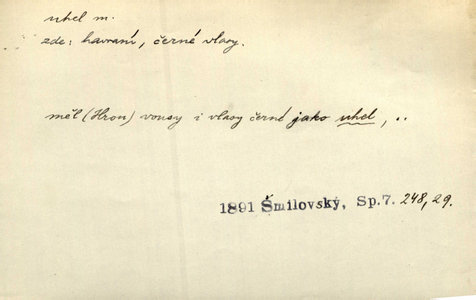 uhel m.
zde: havraní, černé vlasy.
měl (Hron) vousy i vlasy černé jako uhel, ..
1891 Šmilovský, Sp.7. 248,29.